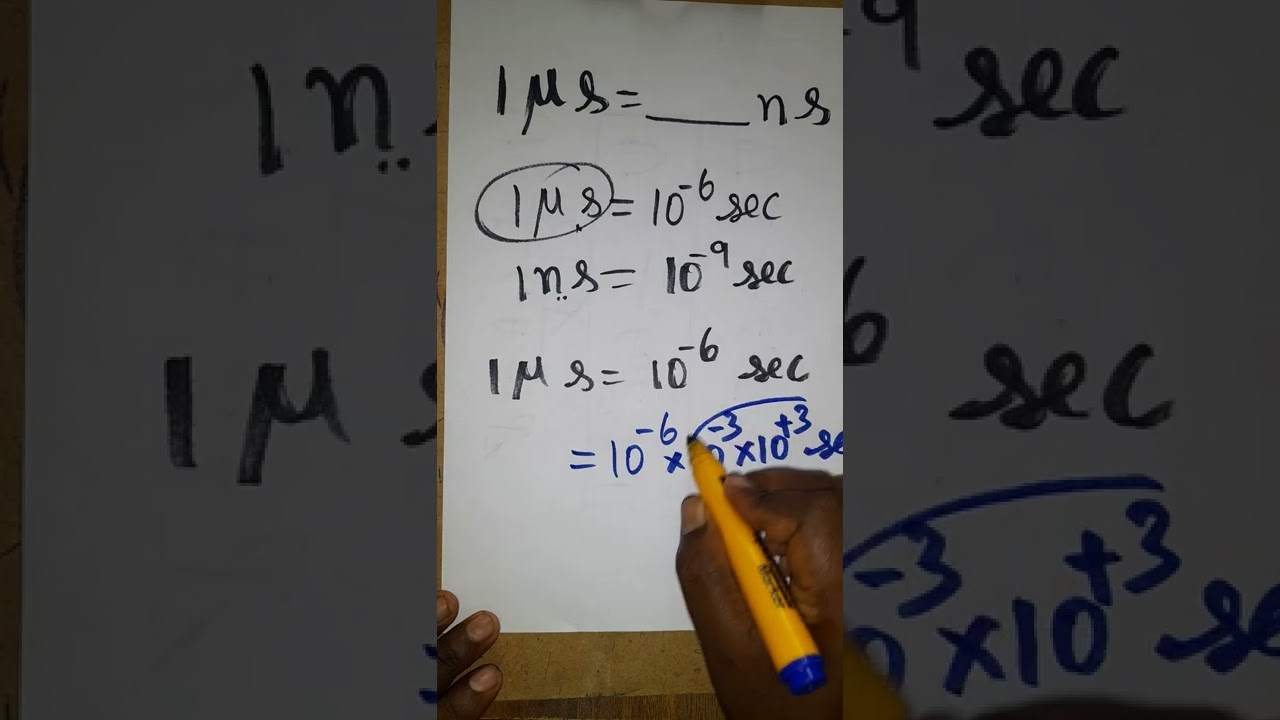 1 μs = ___ ns
1 μs = 10⁻⁶ sec
1 ns = 10⁻⁹ sec
1 μ s = 10⁻⁶ sec
= 10⁻⁶ × 10⁻³ × 10⁺³ se